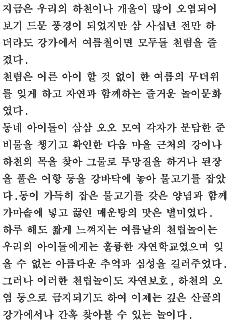 지금은 우리의 하천이나 개울이 많이 오염되어
보기 드문 풍경이 되었지만 삼 사십년 전만 하
더라도 강가에서 여름철이면 모두들 천렵을 즐
겼다.
천렵은 어른 아이 할 것 없이 한 여름의 무더위
를 잊게 하고 자연과 함께하는 즐거운 놀이문화
였다.
동네 아이들이 삼삼 오오 모여 각자가 분담한 준
비물을 챙기고 확인한 다음 마을 근처의 강이나
하천의 목을 찾아 그물로 투망질을 하거나 된장
을 풀은 어항 등을 강바닥에 놓아 물고기를 잡았
다.통이 가득히 잡은 물고기를 갖은 양념과 함께
가마솥에 넣고 끓인 매운탕의 맛은 별미였다.
하루 해도 짧게 느껴지는 여름날의 천렵놀이는
우리의 아이들에게는 훌륭한 자연학교였으며 잊
을 수 없는 아름다운 추억과 심성을 길러주었다.
그러나 이러한 천렵놀이도 자연보호, 하천의 오
염 등으로 금지되기도 하여 이제는 깊은 산골의
강가에서나 간혹 찾아볼 수 있는 놀이다.